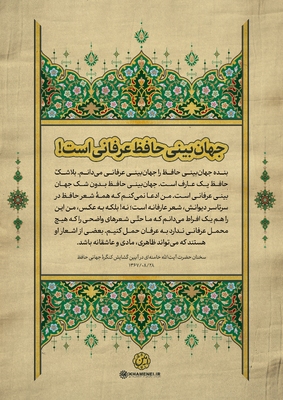 جهان‌بینی حافظ عرفانی است!
بنده جهان‌بینی حافظ را جهان‌بینی عرفانی می‌دانم. بلاشک
حافظ یک عارف است. جهان‌بینی حافظ بدون شک جهان
بینی عرفانی است. من ادعا نمی‌کنم که همهٔ شعر حافظ در
سرتاسر دیوانش، شعر عارفانه است؛ نه! بلکه به عکس، من این
را هم یک افراط می‌دانم که ما حتّی شعرهای واضحی را که هیچ
محمل عرفانی ندارد به عرفان حمل کنیم. بعضی از اشعار او
هستند که می‌تواند ظاهری، مادی و عاشقانه باشد.
سخنان حضرت آیت‌الله خامنه‌ای در آیین گشایش کنگرهٔ جهانی حافظ
۱۳۶۷/۰۸/۲۸
KHAMENEI.IR